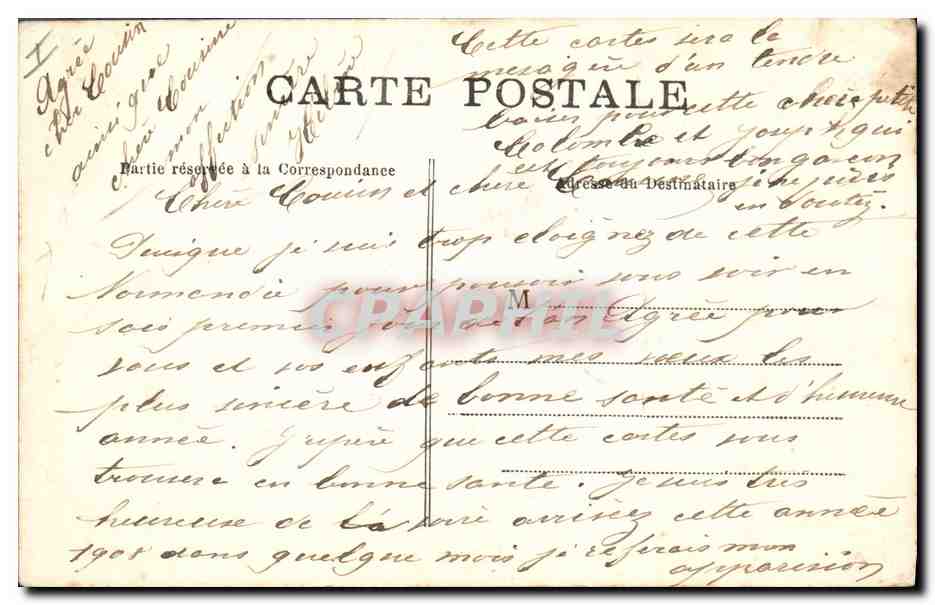 I
Agrée
cher Cousin
ainsi que
chère Cousine
mon
affection
sincère
Cette cartes sera la
mesagère d'un tendre
CARTE POSTALE
baiser pour cette chère petite
Colombe et Joseph qui
est toujours bon garçon
Partie réservée à la Correspondance
Adresse du Destinataire
je ne puis
en doutez.
Chère Cousin et chère
Quoique je suis trop éloignez de cette
Normandie pour pouvoir vous voir en
M
CPAPHIL
premier jours de l'an Agrée pour
vous et vos enfants mes vœux les
plus sincère de bonne santé et d'heureuse
année. J'espère que cette cartes vous
trouvera en bonne santé. Je suis très
heureuse de la voire arrivez cette année
1908 dans quelque mois je referais mon
apparision